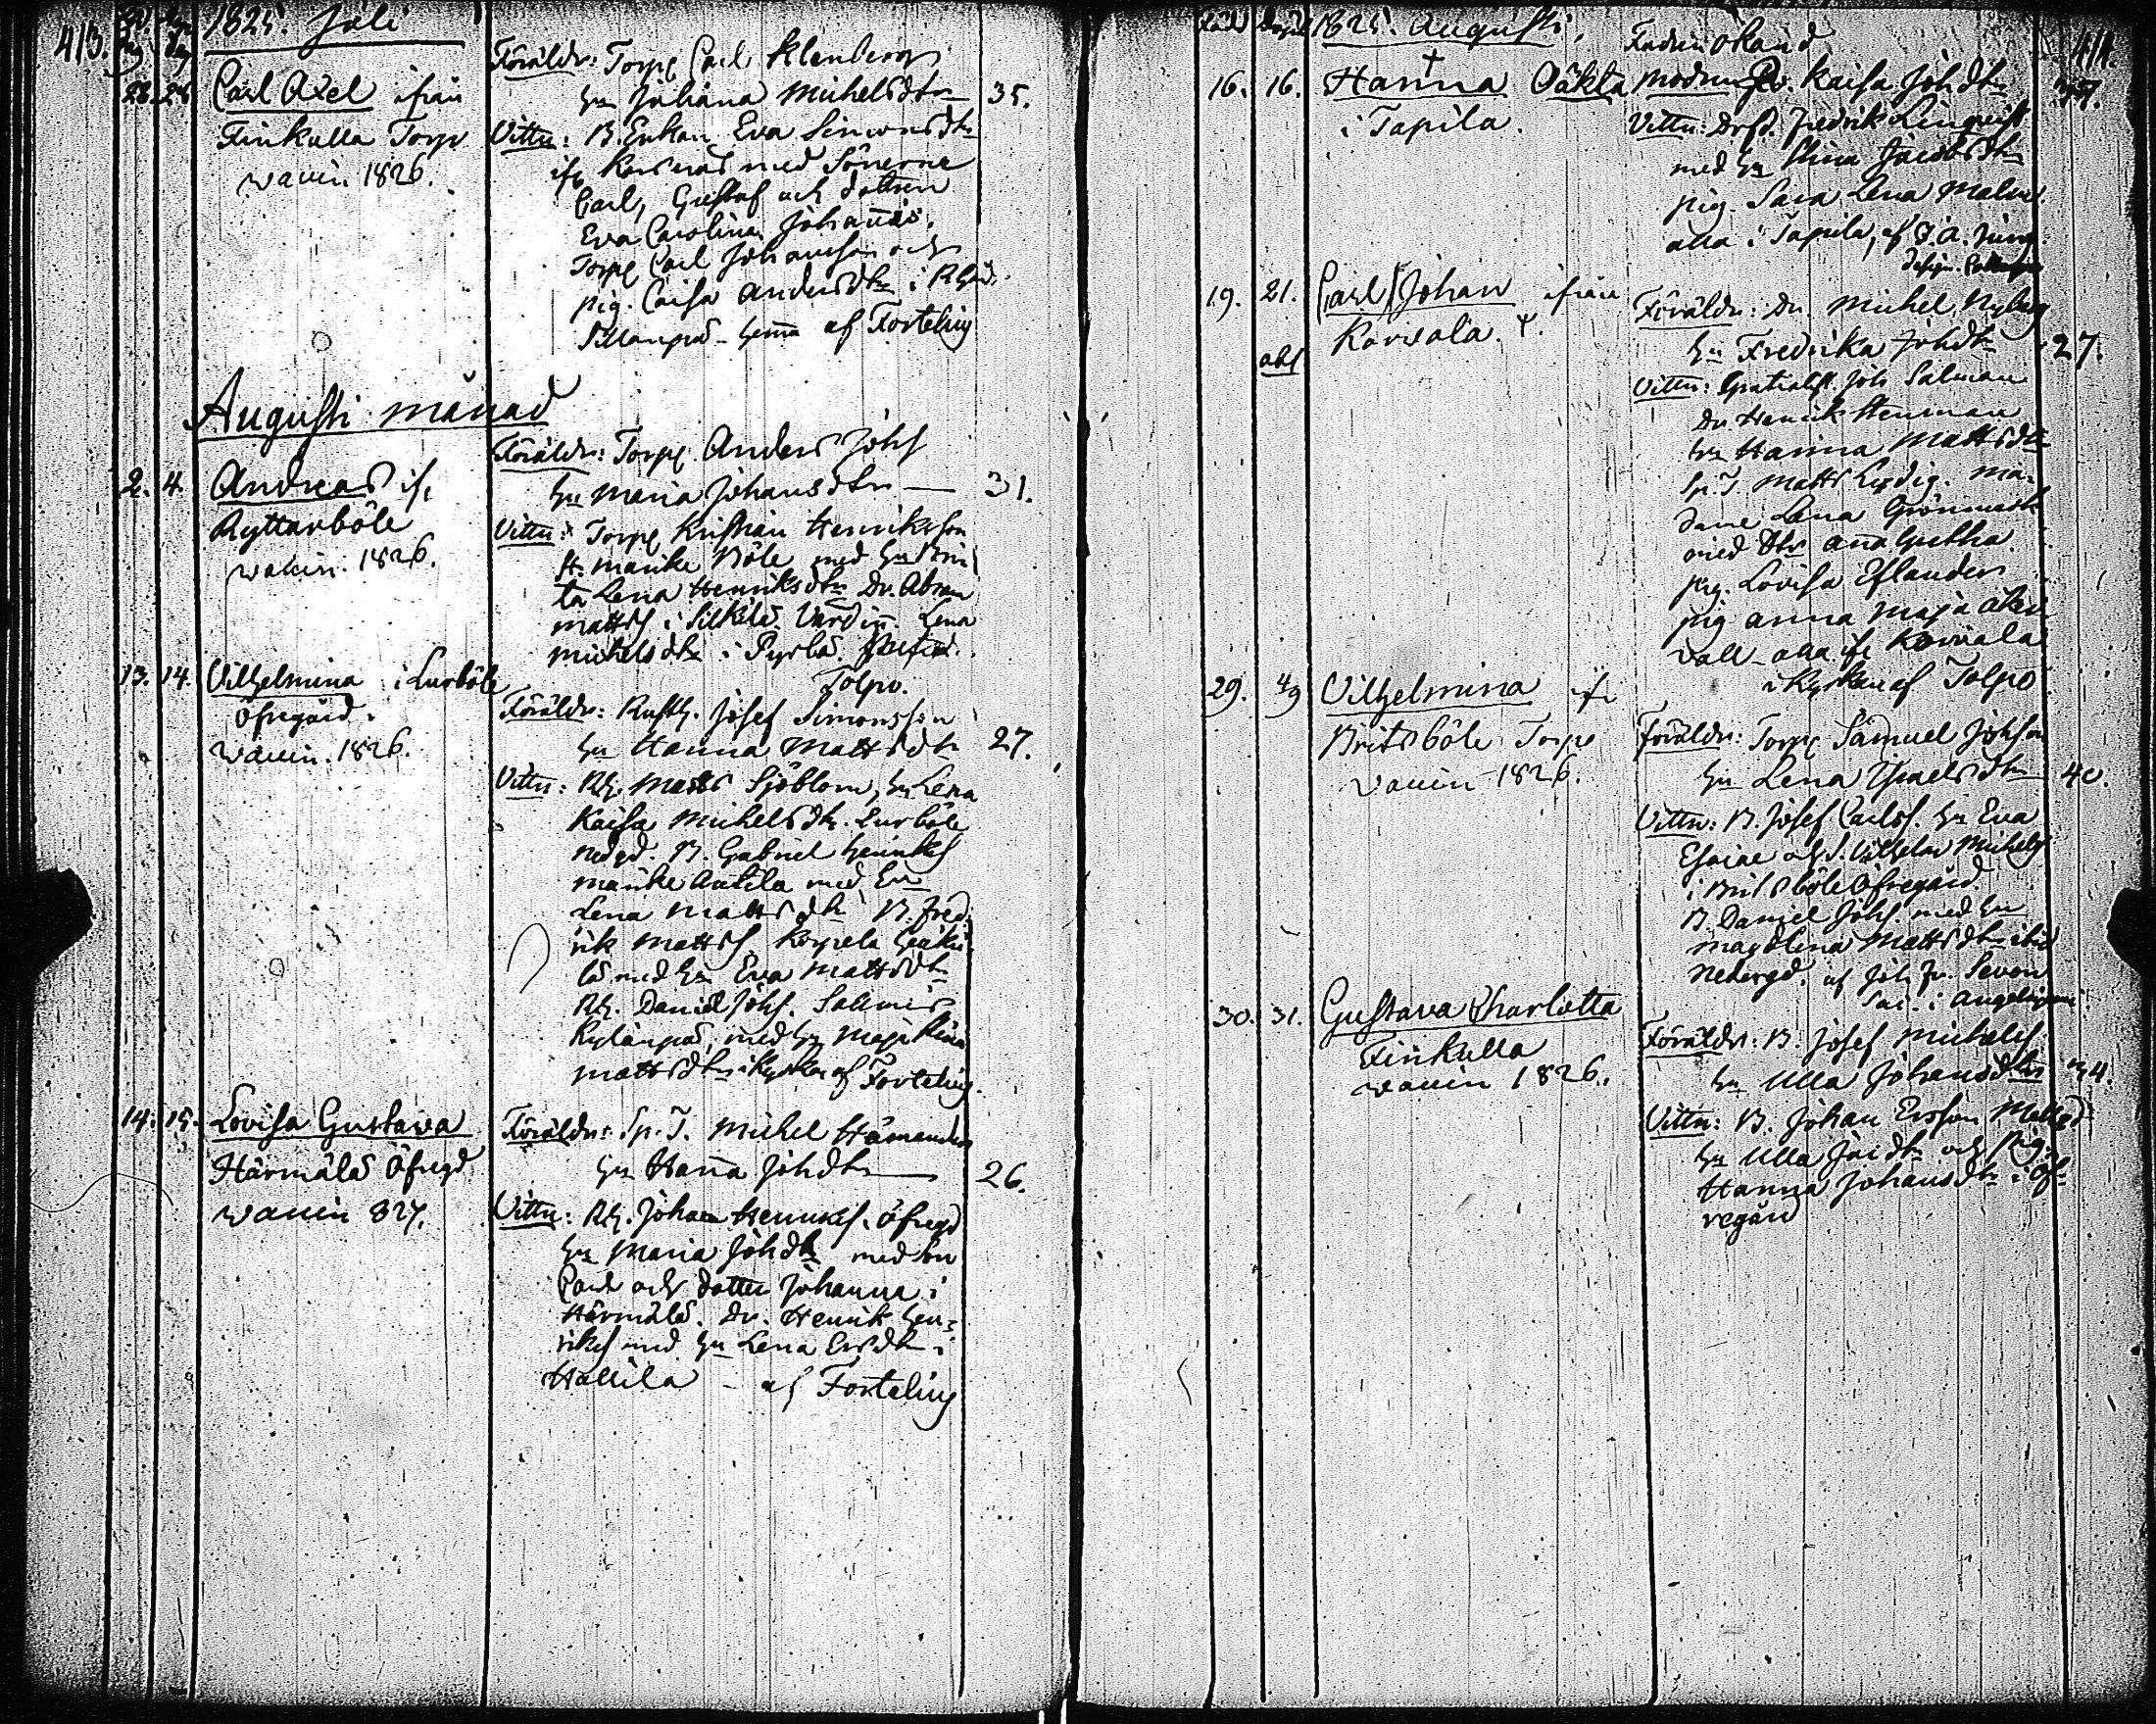 413.
1825. Juli
28. 28. Carl Axel ifrån
Finkulla Torp
vaccin 1826.
Föräldr: Torp. Carl Klenberg
hu Juliana Michelsdtr 35.
Vittn: B. Enkan Eva Simonsdtr
med Sönerne
Carl, Gustaf och dottren
Eva Carolina Johannis.
Torp. Carl Johansson och
pig. Caisa Andersdtr i
hema af Forteling
Augusti månad
2. 4. Andreas if.
Ryttarböle
vaccin. 1826.
Föräldr: Torp. Anders Johs
hu Maria Johansdtr 31.
Vittn: Torp. Kristian Henriksson
fr. Marike Böle med hu Bri
ta Lena Henriksdtr Dr. Abram
Mattss i Silkilä. Värdin. Lena
Michelsdtr i Pyrlä.
Tolpo.
13. 14. Vilhelmina i Lurböle
Öfregård.
vaccin. 1826.
Föräldr: Rusth. Josef Simonsson
hu Hanna Mattsdtr 27.
Vittn: Rh. Matts Sjöblom, hu Lena
Kaisa Michelsdtr. Lurböle
Nedgd. B. Gabriel Henrikss
Marike Antila med hu
Lena Mattsdtr B. Fred
rik Mattss Korpela
med hu Eva Mattsdtr
Rh. Daniel Johs. Salmis
med hu Maja Stina
Mattsdtr i Kyrkan af Forteling.
14. 15. Lovisa Gustava
Härmälä Öfregd
vaccin 827.
Föräldr: Sp. T. Michel Hämender
hu Hanna Johdtr 26.
Vittn: Rh. Johan Henrikss. Öfregd
hu Maria Johdtr med son
Carl och dotter Johanna i
Härmälä. Dr. Henrik Hen-
rikss med hu Lena Ersdtr i
Hallila – af Forteling
1825. Augusti.
414.
16. 16. Hanna Oäkta
i Tapila.
Fadren okänd
Modren Kaisa Johdtr 37.
Vittn: Fredrik Linqvist
med hu Stina Jacobsdtr
pig. Sara Lena Malm
alla i Tapila, af
19. 21. Carl Johan ifrån
Korsala.
Föräldr: Dr. Michel Nyberg
hu Fredrika Johdtr 27.
Vittn: Joh Salman
Dr Henrik Stenman
hu Hanna Mattsdtr
Sp. T. Matts Lydig. Ma-
dame Lena Grönmark
med dtr Anna Gretha
pig. Lovisa Eslander
pig Anna Maja Åker
vall alla if. Korsala
i Kyrkan af Tolpo
29. 4/9 Vilhelmina if
Britsböle Torp
vaccin 1826.
Föräldr: Torp. Samuel Johsson
hu Lena Ismelsdtr 40.
Vittn: B. Josef Carlss. hu Eva
Esaiae och S. Vilhelm Michels
i Britsböle Öfregård.
B. Daniel Johs. med hu
Magdlena Mattsdtr ibid
Nedergd. af Joh Fr. Sevon
30. 31. Gustava Charlotta
Finkulla
vaccin 1826.
Föräldr: B. Josef Michelss
hu Ulla Johansdtr 34.
Vittn: B. Johan Ersson Mellgd
hu Ulla Jacdtr och pig.
Hanna Johansdtr i Öf-
regård